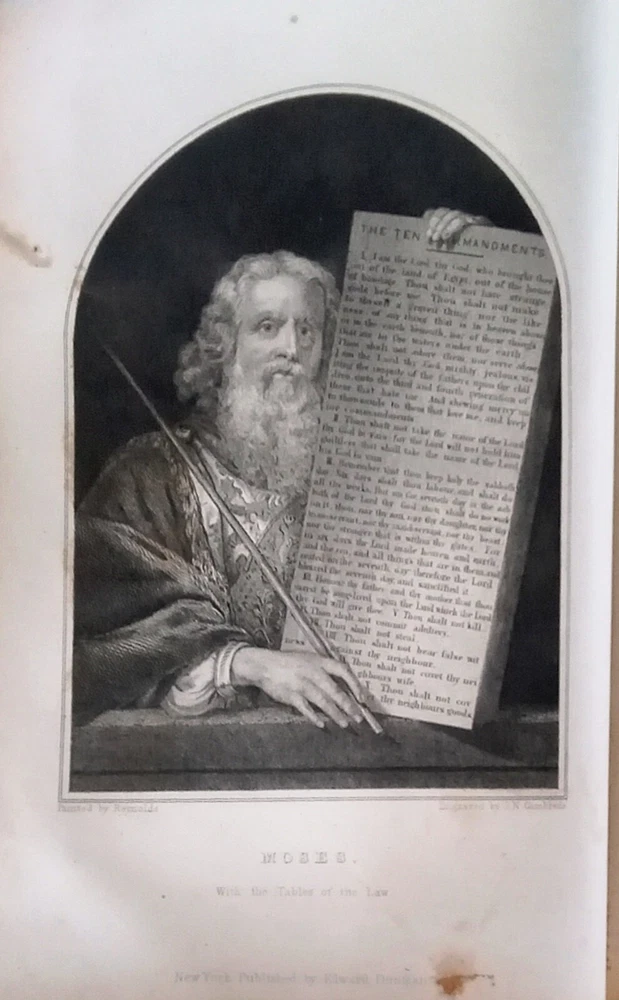 THE TEN COMMANDMENTS
I. I am the Lord thy God, who brought thee
out of the land of Egypt, out of the house
of bondage. Thou shalt not have strange
gods before me. Thou shalt not make
to thyself a graven thing nor the like-
ness of any thing that is in heaven above
or in the earth beneath, nor of those things
that are in the waters under the earth
Thou shalt not adore them, nor serve them
I am the Lord thy God, mighty, jealous, vis-
iting the iniquity of the fathers upon the chil
dren, unto the third and fourth generation of
them that hate me. And shewing mercy un
to thousands to them that love me, and keep
my commandments.
Thou shalt not take the name of the Lord
thy God in vain for the Lord will not hold him
guiltless that shall take the name of the Lord
his God in vain
Remember that thou keep holy the sabbath
day Six days shalt thou labour, and shalt do
all thy works. But on the seventh day is the sab
bath of the Lord thy God thou shalt do no work
on it, thou, nor thy son, nor thy daughter, nor thy
man-servant, nor thy maid-servant, nor thy beast,
nor the stranger that is within thy gates. For
in six days the Lord made heaven and earth,
and the sea, and all things that are in them, and
rested on the seventh day therefore the Lord
blessed the seventh day, and sanctified it
Honour thy father and thy mother that thou
mayst be long-lived upon the land which the Lord
thy God will give thee. V Thou shalt not kill.
Thou shalt not commit adultery.
Thou shalt not steal.
III. Thou shalt not bear false wit
ness against thy neighbour.
Thou shalt not covet thy nei
ghbours wife.
Thou shalt not cov
et thy neighbours goods.
Painted by Reynolds
Engraved by J.N. Gimbrede
MOSES.
With the Tables of the Law
New York Published by Edward Dunigan